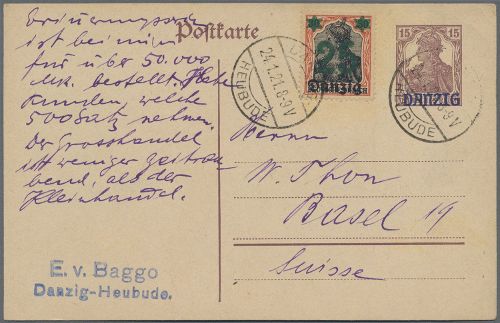 Erinnerungs
ist bei mir
für über 50.000
Mk. bestellt. Habe
Kunden, welche
500 Satz nehmen.
Der Grosshandel
ist weniger zeitrau-
bend, als der
Kleinhandel.
E. v. Baggo
Danzig-Heubude.
Postkarte
24.1.21.8-9V
HEUBUDE
Danzig
15 15
DANZIG
HEUBUDE
8-9V
Herrn
W. Thon
Basel 19
Suisse